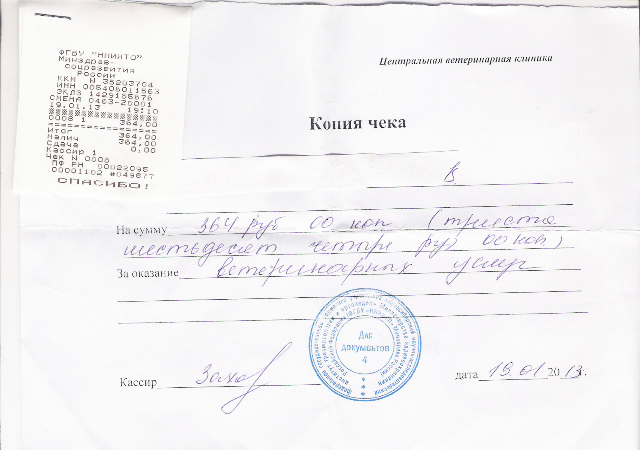 ФГБУ "ННИИТО"
Минздрав-
соцразвития
России
ККН N 35203704
ИНН 005406011563
ЭКЛЗ 1429156676
СМЕНА 0463-20001
19.01.13 19:10
0008 1 364,00
Итог 364,00
Налич 364,00
Сдача 0,00
Кассир 1
Чек N 0008
ПФ РН 00022095
00001102 #049677
СПАСИБО!
Центральная ветеринарная клиника
Копия чека
В
На сумму 364 руб 00 коп (триста
шестьдесят четыре руб 00 коп)
За оказание ветеринарных услуг
Для
документов
4
Кассир
дата 19.01 2013г.